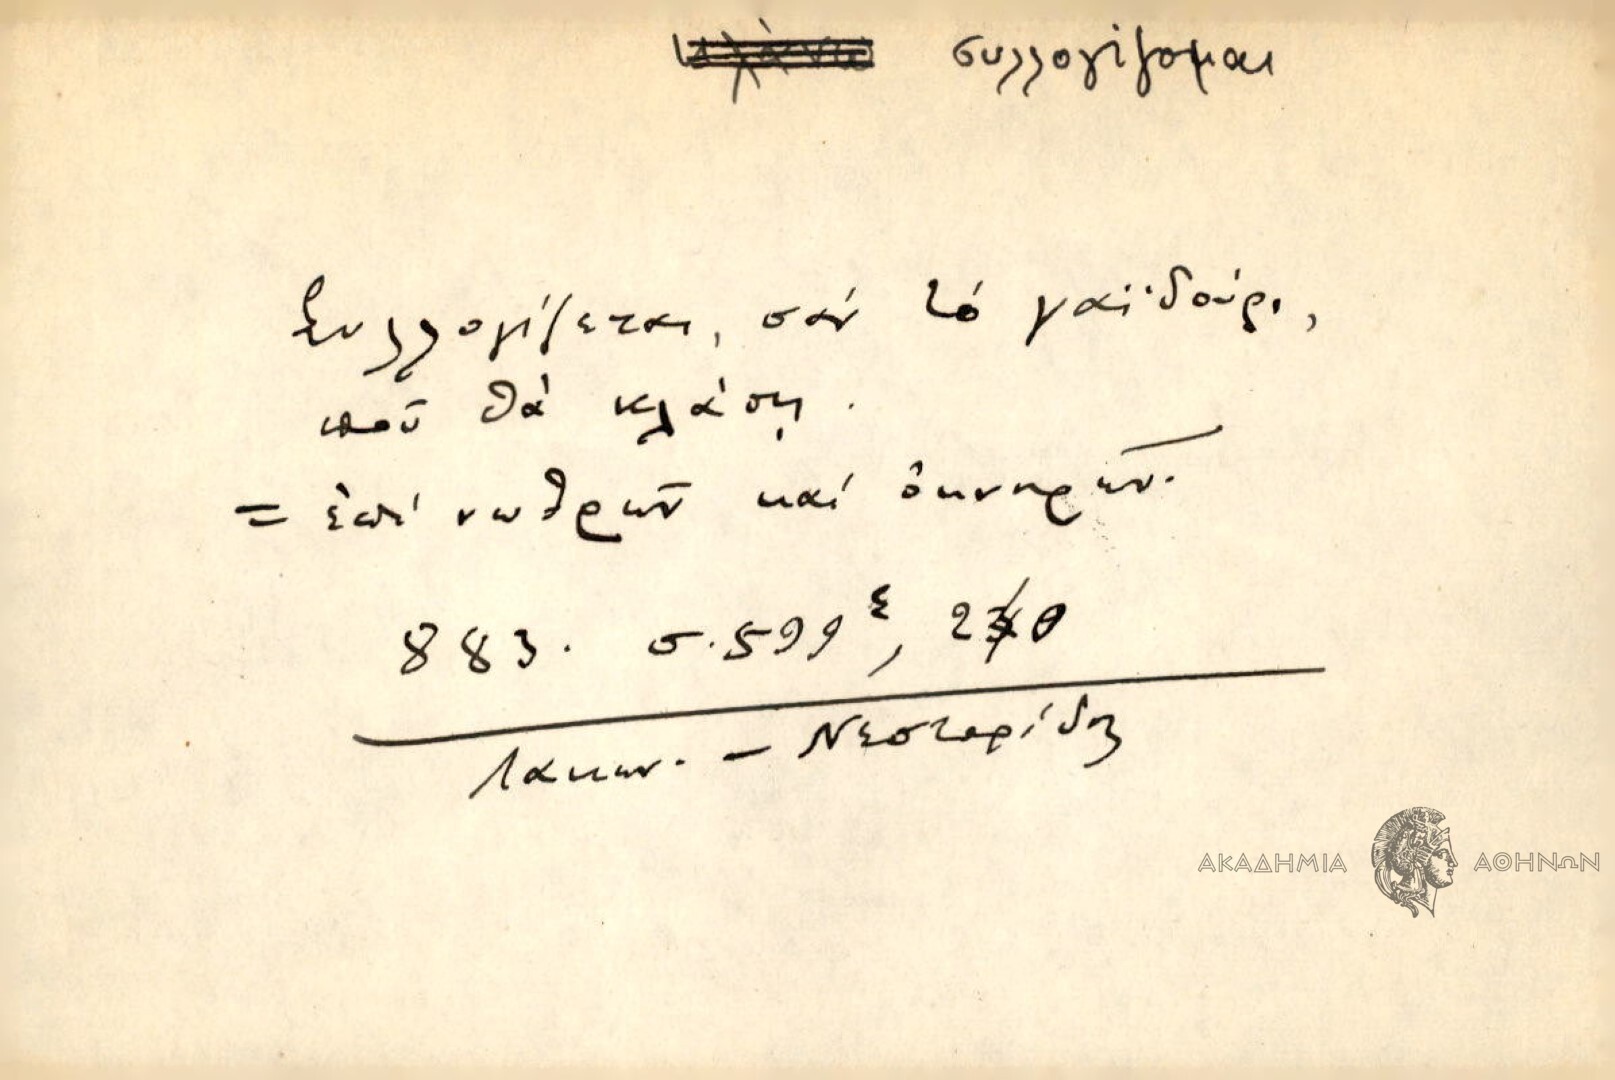 συλλογίζομαι
Συλλογίζεται, σάν τό γαϊδούρι,
ποῦ θά κλάσῃ.
= ἐπί νωθρῶν καί ὀκνηρῶν.
883. σ. 599ε, 2
Λακων. - Νεστορίδης
ΑΚΑΔΗΜΙΑ ΑΘΗΝΩΝ